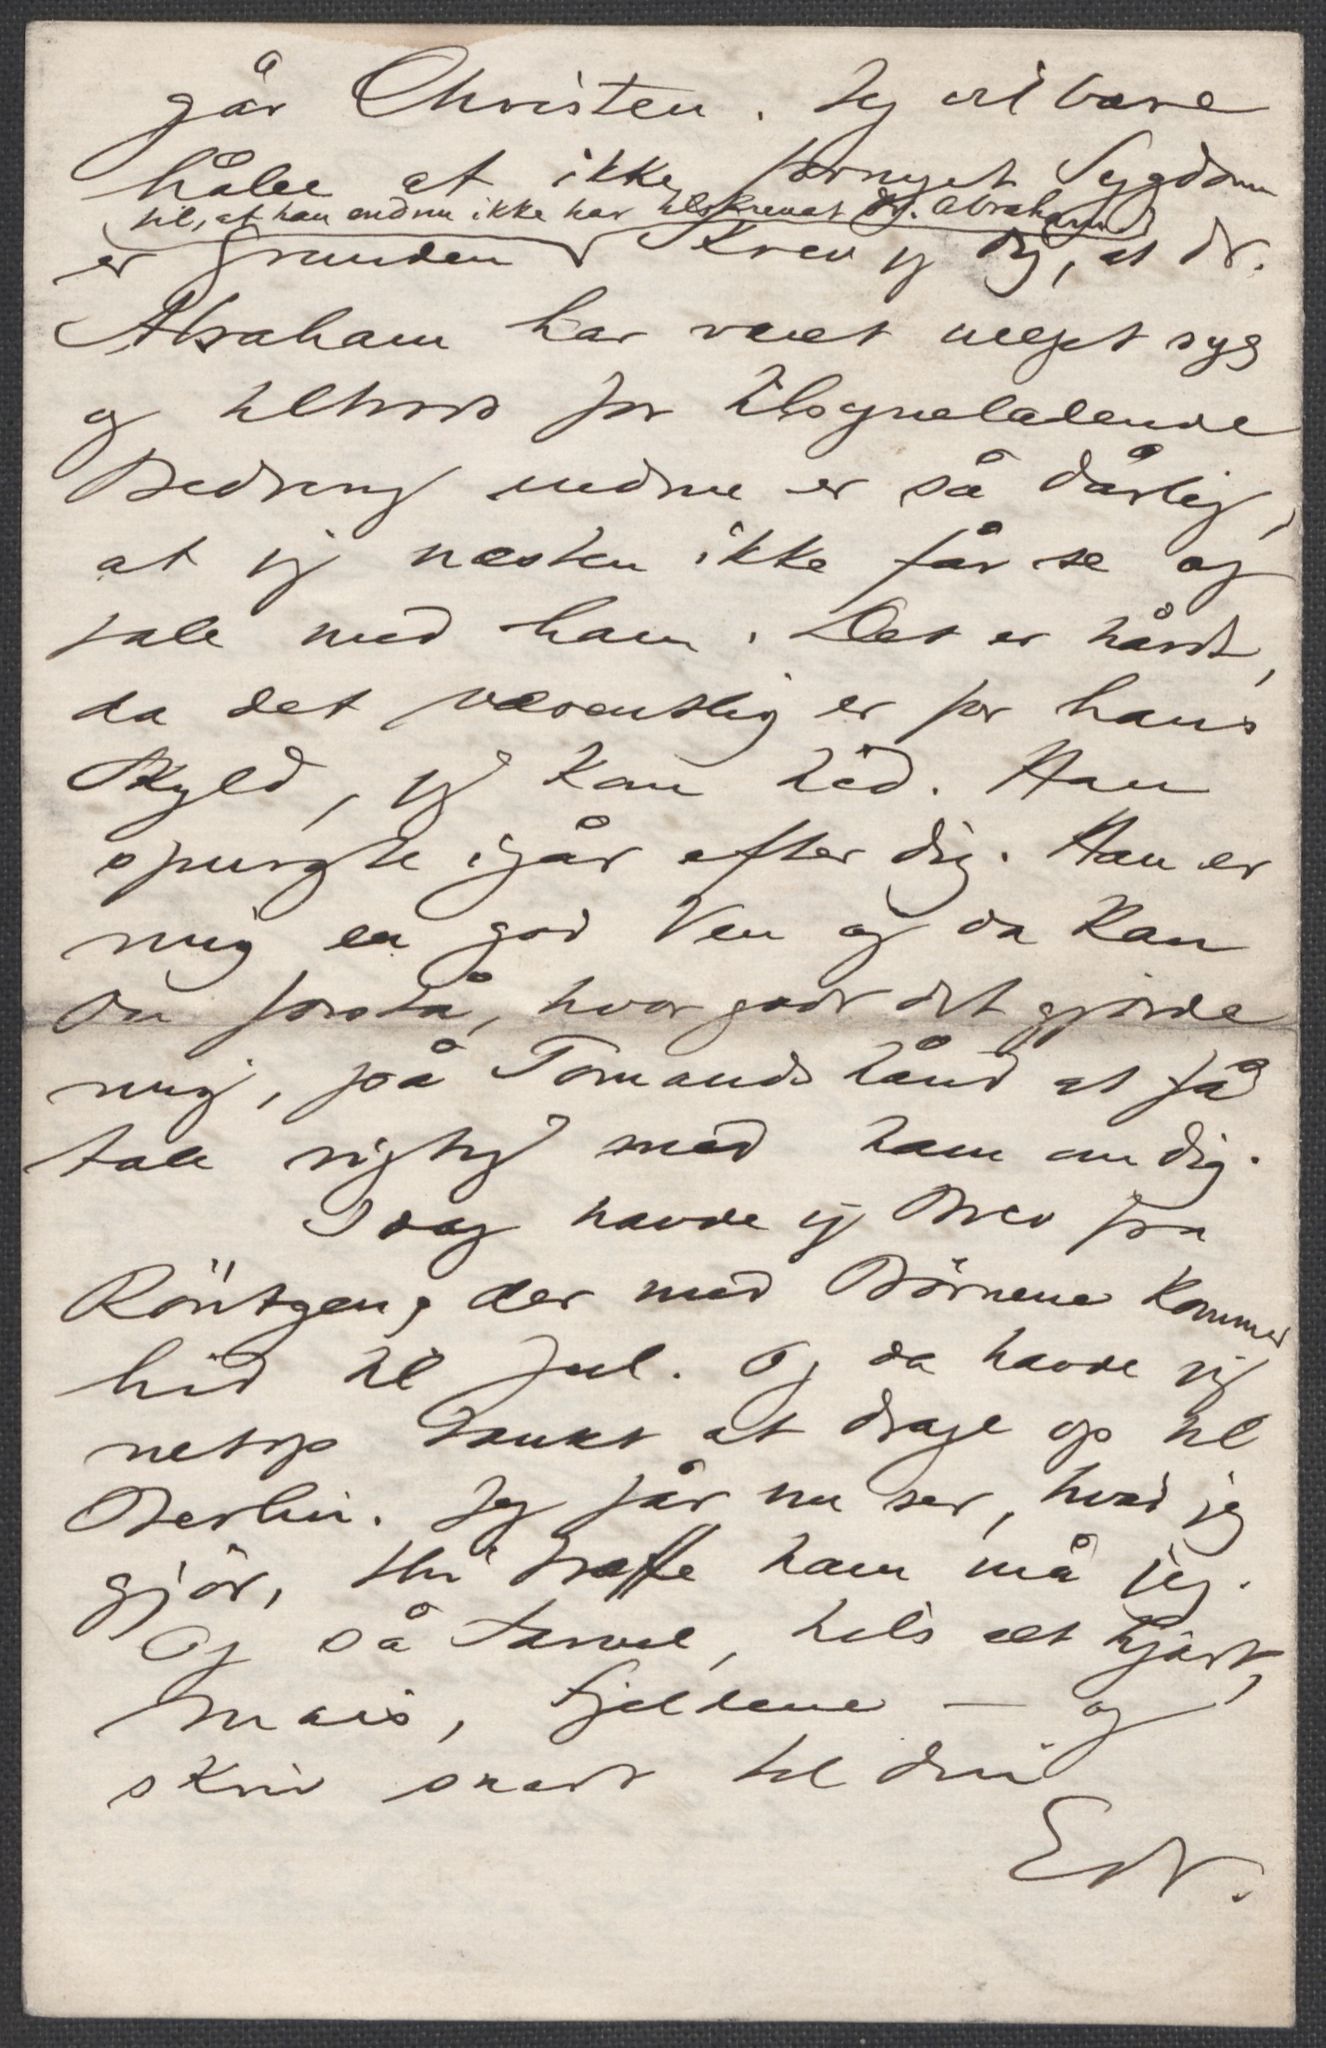 går Christen. Jeg vil bare
håbe at ikke fornyet Sygdom
til, at han endnu ikke har tilskrevet Dr. Abraham
er Grunden Skrev jeg dig, at Dr.
Abraham har været meget syg
og tiltrods for tilsyneladende
Bedring endnu er så dårlig,
at jeg næsten ikke får se og
tale med ham. Det er hårdt,
da det væsentlig er for hans
Skyld, jeg kom hid. Han
spurgte igår efter dig. Han er
mig en god Ven og da kan
du forstå, hvor godt det gjorde
mig, på Tomands hånd at få
tale rigtig med ham om dig.
Idag havde jeg Brev fra
Röntgen, der med Börnene kommer
hid til Jul. Og da havde jeg
netop tænkt at drage op til
Berlin. Jeg får nu se, hvad jeg
gjör, thi træffe ham må jeg.
Og så Farvel, hils alt kjært,
Mais, Fjeldene – og
skriv snart til din
Edv.